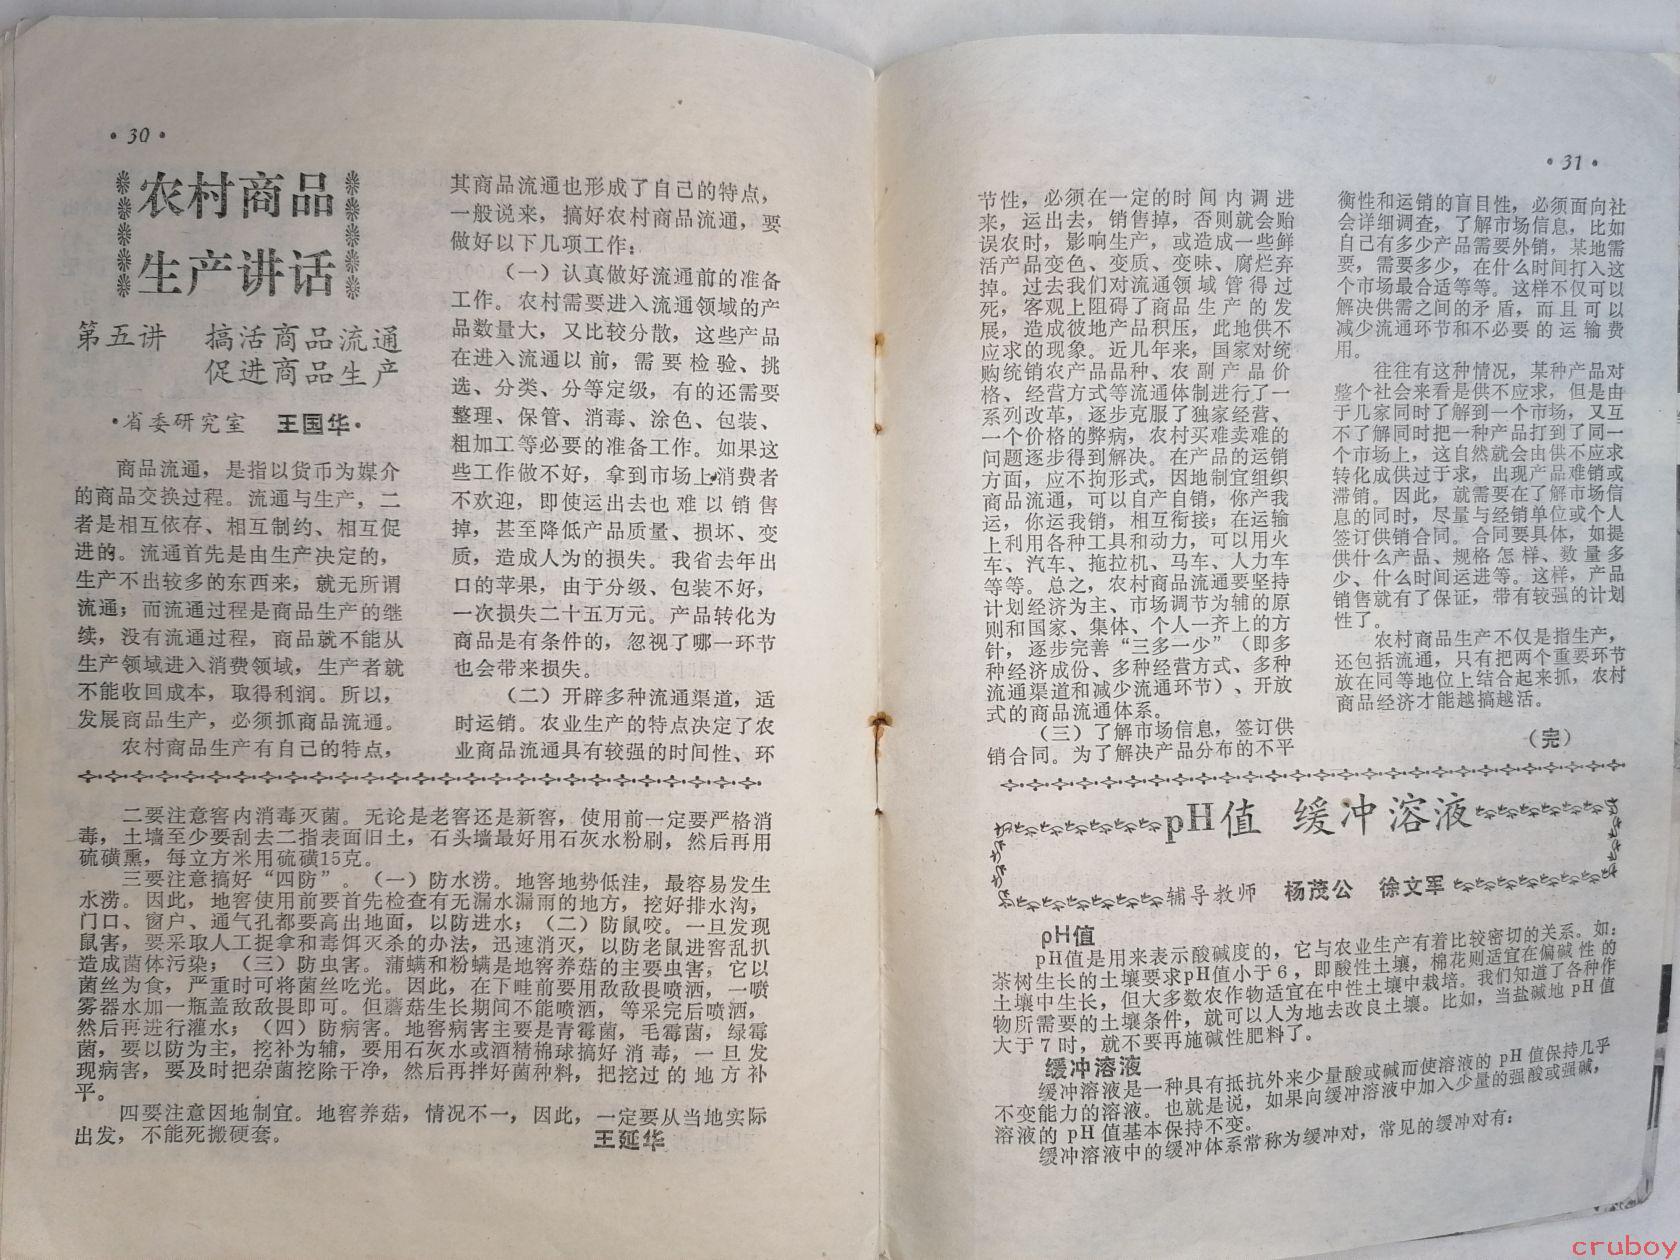 · 30 ·
农村商品
生产讲话
第五讲 搞活商品流通
促进商品生产
·省委研究室 王国华·
商品流通，是指以货币为媒介
的商品交换过程。流通与生产，二
者是相互依存、相互制约、相互促
进的。流通首先是由生产决定的，
生产不出较多的东西来，就无所谓
流通；而流通过程是商品生产的继
续，没有流通过程，商品就不能从
生产领域进入消费领域，生产者就
不能收回成本，取得利润。所以，
发展商品生产，必须抓商品流通。
农村商品生产有自己的特点，
其商品流通也形成了自己的特点，
一般说来，搞好农村商品流通，要
做好以下几项工作：
（一）认真做好流通前的准备
工作。农村需要进入流通领域的产
品数量大，又比较分散，这些产品
在进入流通以前，需要检验、挑
选、分类、分等定级，有的还需要
整理、保管、消毒、涂色、包装、
粗加工等必要的准备工作。如果这
些工作做不好，拿到市场上消费者
不欢迎，即使运出去也难以销售
掉，甚至降低产品质量、损坏、变
质，造成人为的损失。我省去年出
口的苹果，由于分级、包装不好，
一次损失二十五万元。产品转化为
商品是有条件的，忽视了哪一环节
也会带来损失。
（二）开辟多种流通渠道，适
时运销。农业生产的特点决定了农
业商品流通具有较强的时间性、环
二要注意窖内消毒灭菌。无论是老窖还是新窖，使用前一定要严格消
毒，土墙至少要刮去二指表面旧土，石头墙最好用石灰水粉刷，然后再用
硫磺熏，每立方米用硫磺15克。
三要注意搞好“四防”。（一）防水涝。地窖地势低洼，最容易发生
水涝。因此，地窖使用前要首先检查有无漏水漏雨的地方，挖好排水沟，
门口、窗户、通气孔都要高出地面，以防进水；（二）防鼠咬。一旦发现
鼠害，要采取人工捉拿和毒饵灭杀的办法，迅速消灭，以防老鼠进窖乱扒
造成菌体污染；（三）防虫害。蒲螨和粉螨是地窖养菇的主要虫害，它以
菌丝为食，严重时可将菌丝吃光。因此，在下畦前要用敌敌畏喷洒，一喷
雾器水加一瓶盖敌敌畏即可。但蘑菇生长期间不能喷洒，等采完后喷洒，
然后再进行灌水；（四）防病害。地窖病害主要是青霉菌，毛霉菌，绿霉
菌，要以防为主，挖补为辅，要用石灰水或酒精棉球搞好消毒，一旦发
现病害，要及时把杂菌挖除干净，然后再拌好菌种料，把挖过的地方补
平。
四要注意因地制宜。地窖养菇，情况不一，因此，一定要从当地实际
出发，不能死搬硬套。 王延华
· 31 ·
节性，必须在一定的时间内调进
来，运出去，销售掉，否则就会贻
误农时，影响生产，或造成一些鲜
活产品变色、变质、变味、腐烂弃
掉。过去我们对流通领域管得过
死，客观上阻碍了商品生产的发
展，造成彼地产品积压，此地供不
应求的现象。近几年来，国家对统
购统销农产品品种、农副产品价
格、经营方式等流通体制进行了一
系列改革，逐步克服了独家经营、
一个价格的弊病，农村买难卖难的
问题逐步得到解决。在产品的运销
方面，应不拘形式，因地制宜组织
商品流通，可以自产自销，你产我
运，你运我销，相互衔接；在运输
上利用各种工具和动力，可以用火
车、汽车、拖拉机、马车、人力车
等等。总之，农村商品流通要坚持
计划经济为主、市场调节为辅的原
则和国家、集体、个人一齐上的方
针，逐步完善“三多一少”（即多
种经济成份、多种经营方式、多种
流通渠道和减少流通环节）、开放
式的商品流通体系。
（三）了解市场信息，签订供
销合同。为了解决产品分布的不平
衡性和运销的盲目性，必须面向社
会详细调查，了解市场信息，比如
自己有多少产品需要外销，某地需
要，需要多少，在什么时间打入这
个市场最合适等等。这样不仅可以
解决供需之间的矛盾，而且可以
减少流通环节和不必要的运输费
用。
往往有这种情况，某种产品对
整个社会来看是供不应求，但是由
于几家同时了解到一个市场，又互
不了解同时把一种产品打到了同一
个市场上，这自然就会由供不应求
转化成供过于求，出现产品难销或
滞销。因此，就需要在了解市场信
息的同时，尽量与经销单位或个人
签订供销合同。合同要具体，如提
供什么产品、规格怎样、数量多
少、什么时间运进等。这样，产品
销售就有了保证，带有较强的计划
性了。
农村商品生产不仅是指生产，
还包括流通，只有把两个重要环节
放在同等地位上结合起来抓，农村
商品经济才能越搞越活。
（完）
pH值 缓冲溶液
辅导教师 杨茂公 徐文军
pH值
pH值是用来表示酸碱度的，它与农业生产有着比较密切的关系。如：
茶树生长的土壤要求pH值小于6，即酸性土壤，棉花则适宜在偏碱性的
土壤中生长，但大多数农作物适宜在中性土壤中栽培。我们知道了各种作
物所需要的土壤条件，就可以人为地去改良土壤。比如，当盐碱地pH值
大于7时，就不要再施碱性肥料了。
缓冲溶液
缓冲溶液是一种具有抵抗外来少量酸或碱而使溶液的pH值保持几乎
不变能力的溶液。也就是说，如果向缓冲溶液中加入少量的强酸或强碱，
溶液的pH值基本保持不变。
缓冲溶液中的缓冲体系常称为缓冲对，常见的缓冲对有：
cruboy